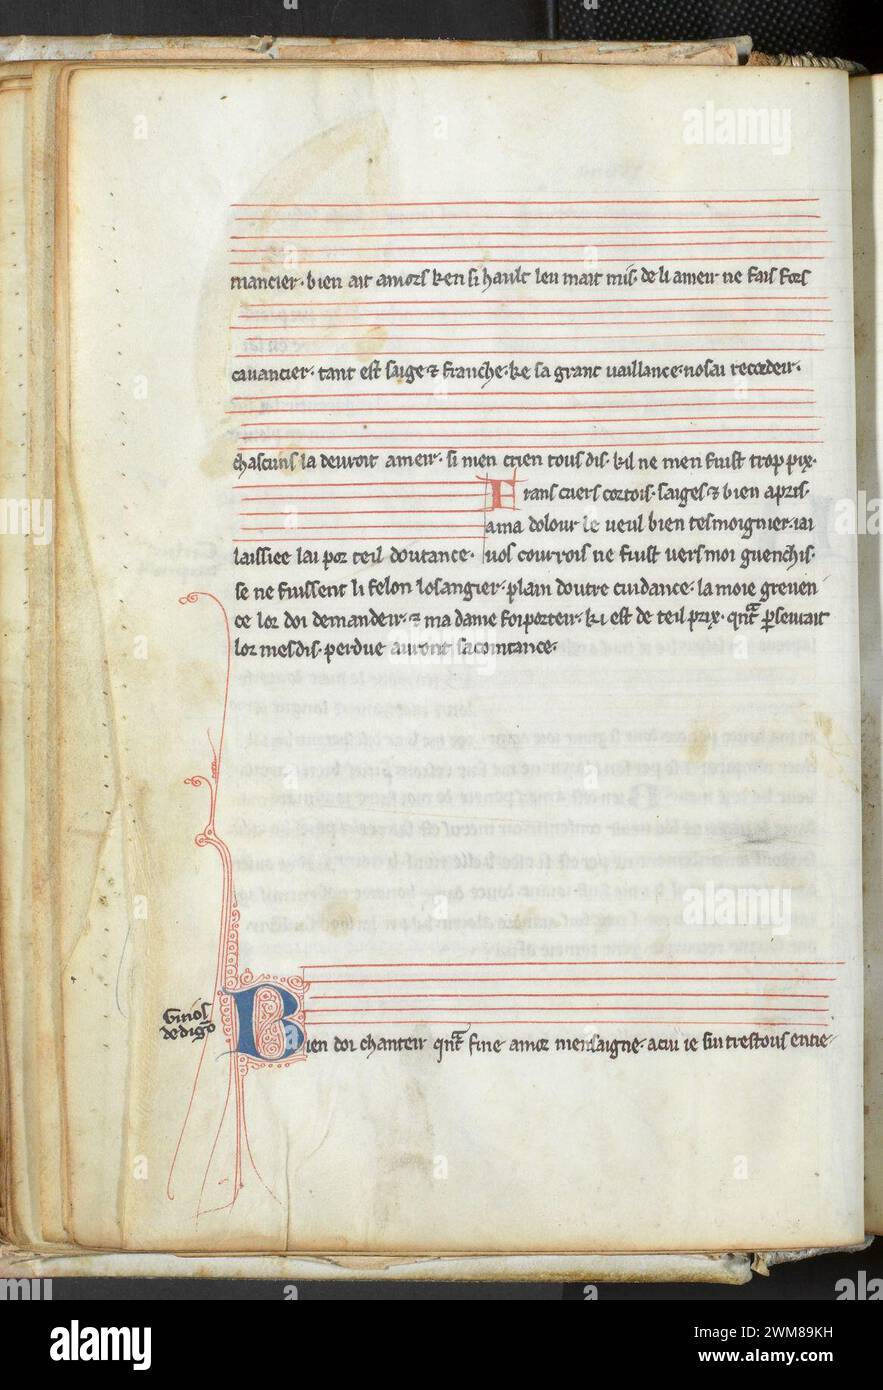 mancier· bien ait amors k'en si hault leu mait mis· de li ameir ne fais fors
cavancier· tant est saige & franche· ke sa grant vaillance· nosai recordeir·
chascuns la devroit ameir· si men crien tous dis· kil ne men fuist trop pix·
Frans cuers cortois· saiges & bien apris·
ama dolour le veul bien tesmoignier· iai
laissiee lai por teil doutance· vos courrois ne fuist vers moi guenchis·
se ne fuissent li felon losangier· plain doutre cuidance· la moie greven
ce lor doi demandeir· & ma dame forporteir· ki est de teil prix· qnt persevrait
lor mesdis· perdue auront sacointance·
Guios
de digon
Bien doi chanteir qnt fine amor mensaigne· a cui ie sui trestous entie
alamy
Image ID: 2WM89KH
www.alamy.com